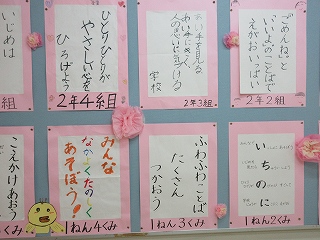 いじめは
組
ひとりひとりが
やさしい心を
ひろげよう
2年4組
あい手を見る
人の思いに気づける
学校
2年3組
「ごめんね」と
いいよのことばで
えがおいっぱい
2年2組
こえかけあおう
くみ
みんな
なかよくたのしく
あそぼう!
1ねん4くみ
ふわふわことば
たくさん
つかおう
1ねん3くみ
いちのに
1ねん2くみ